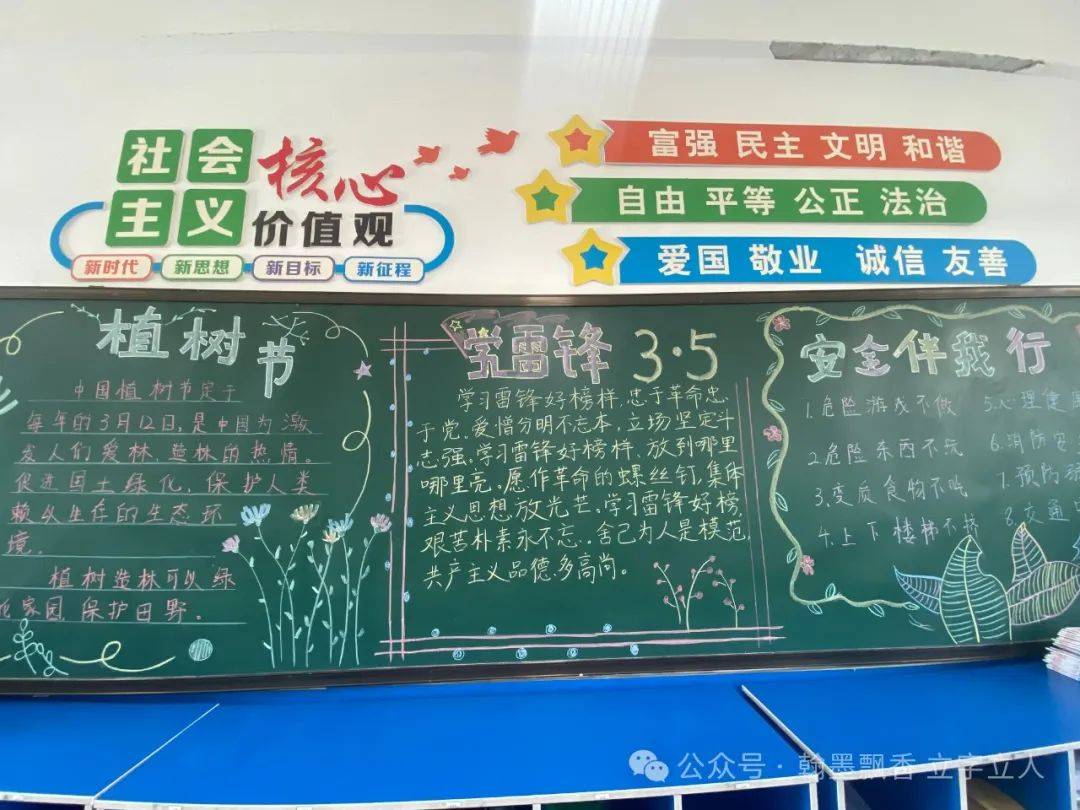 社会
主义
核心
价值观
新时代 新思想 新目标 新征程
富强 民主 文明 和谐
自由 平等 公正 法治
爱国 敬业 诚信 友善
植树节
中国植树节定于
每年的3月12日,是中国为激
发人们爱林、造林的热情。
促进国土绿化,保护人类
赖以生存的生态环
境。
植树造林可以绿
化家园,保护田野。
学雷锋 3·5
学习雷锋好榜样,忠于革命忠
于党。爱憎分明不忘本,立场坚定斗
志强。学习雷锋好榜样,放到哪里
哪里亮。愿作革命的螺丝钉,集体
主义思想放光芒。学习雷锋好榜,
艰苦朴素永不忘.舍己为人是模范,
共产主义品德多高尚。
安全伴我行
1.危险游戏不做
2.危险东西不玩
3.变质食物不吃
4.上下楼梯不挤
5.心理健
6.消防安
7.预防
8.交通
公众号·翰墨飘香 立字立人